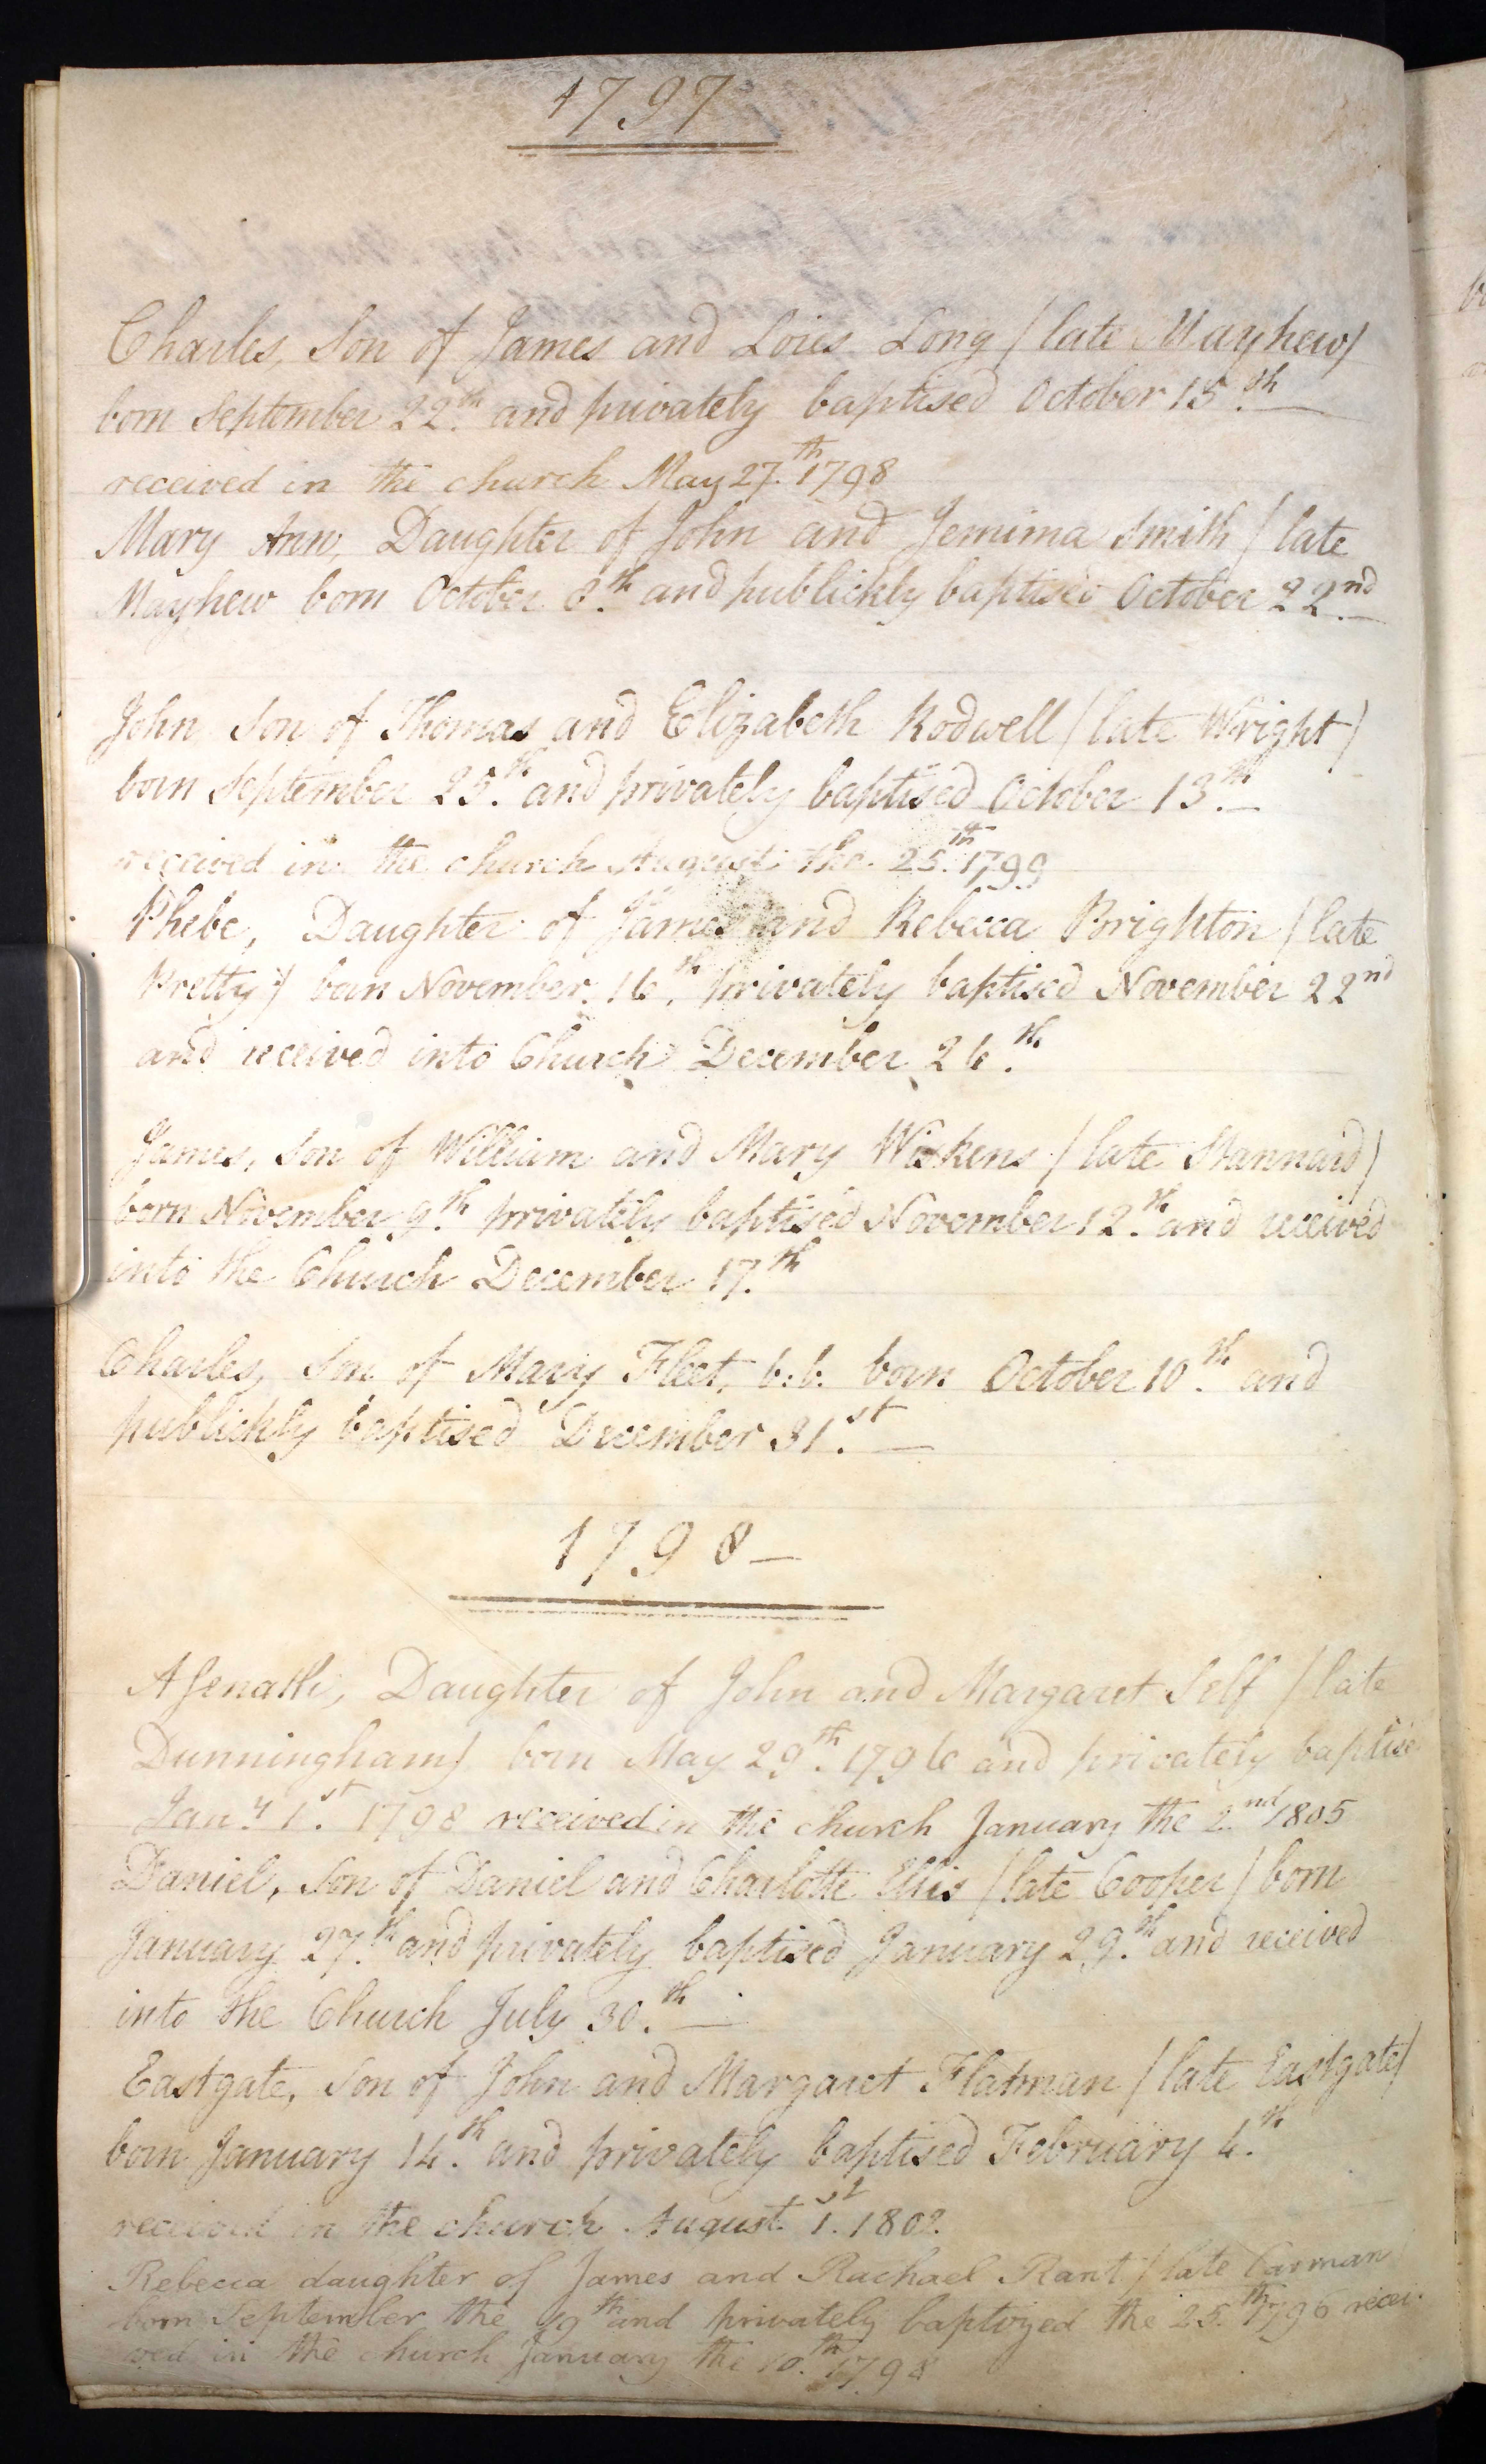 1797
Charles, Son of James and Lois Long (late Mayhew)
born September 22th and privately baptised October 15th
received in the church May 27th 1798
Mary Ann, Daughter of John and Jemima Smith (late
Mayhew born October 8th and publickly baptised October 22nd
John Son of Thomas and Elizabeth Rodwell (late Wright)
born September 25th and privately baptised October 13th
received in the church August the 25th 1799
Phebe, Daughter of James and Rebecca Brighton (late
Pretty) born November 16th, privately baptised November 22nd
and received into Church December 26th
James, Son of William and Mary Wickens (late Stannard)
born November 9th privately baptised November 12th and received
into the Church December 17th
Charles, Son of Mary Fleet, b:b. born October 10th and
publickly baptised December 31st
1798
Asenath, Daughter of John and Margaret Self (late
Dunningham) born May 29th 1796 and privately baptise
Jany 1st 1798 received in the church January the 2nd 1805
Daniel, Son of Daniel and Charlotte Ellis (late Cooper) born
January 27th and privately baptised January 29th and received
into the Church July 30th
Eastgate, Son of John and Margaret Flatman (late Eastgate)
born January 14th and privately baptised February 4th
received in the church August 1st 1802
Rebecca daughter of James and Rachael Rant (late Carman)
born September the 19th and privately baptized the 25th 1796 recei-
ved in the church January the 10th 1798